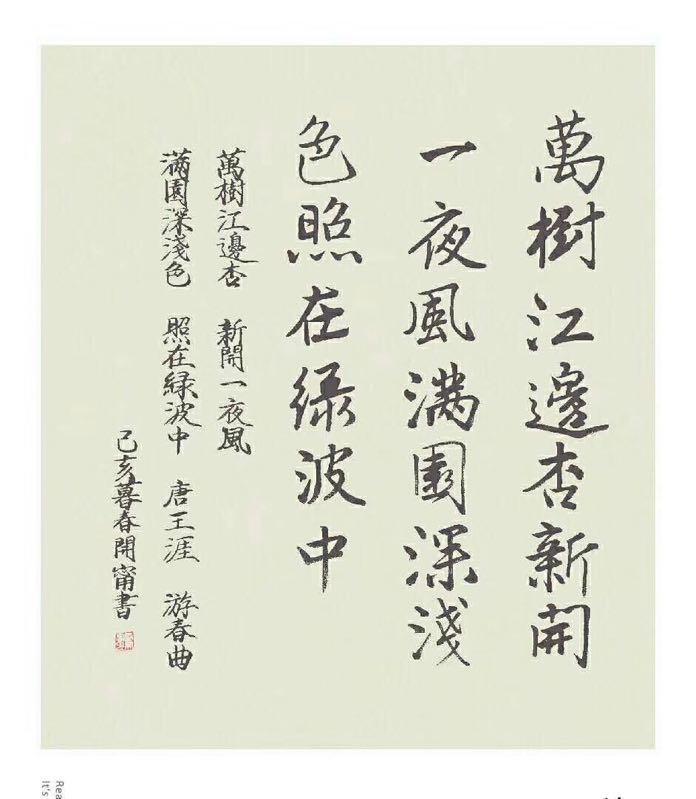 萬樹江邊杏新開
一夜風滿園深淺
色照在綠波中
萬樹江邊杏 新開一夜風
滿園深淺色 照在綠波中 唐王涯 游春曲
己亥暮春開甯書
Rea
It's